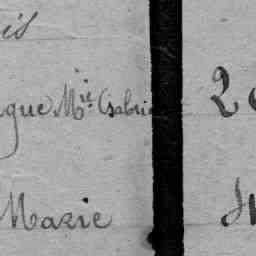 is
gue Mie Gabri
2
Marie